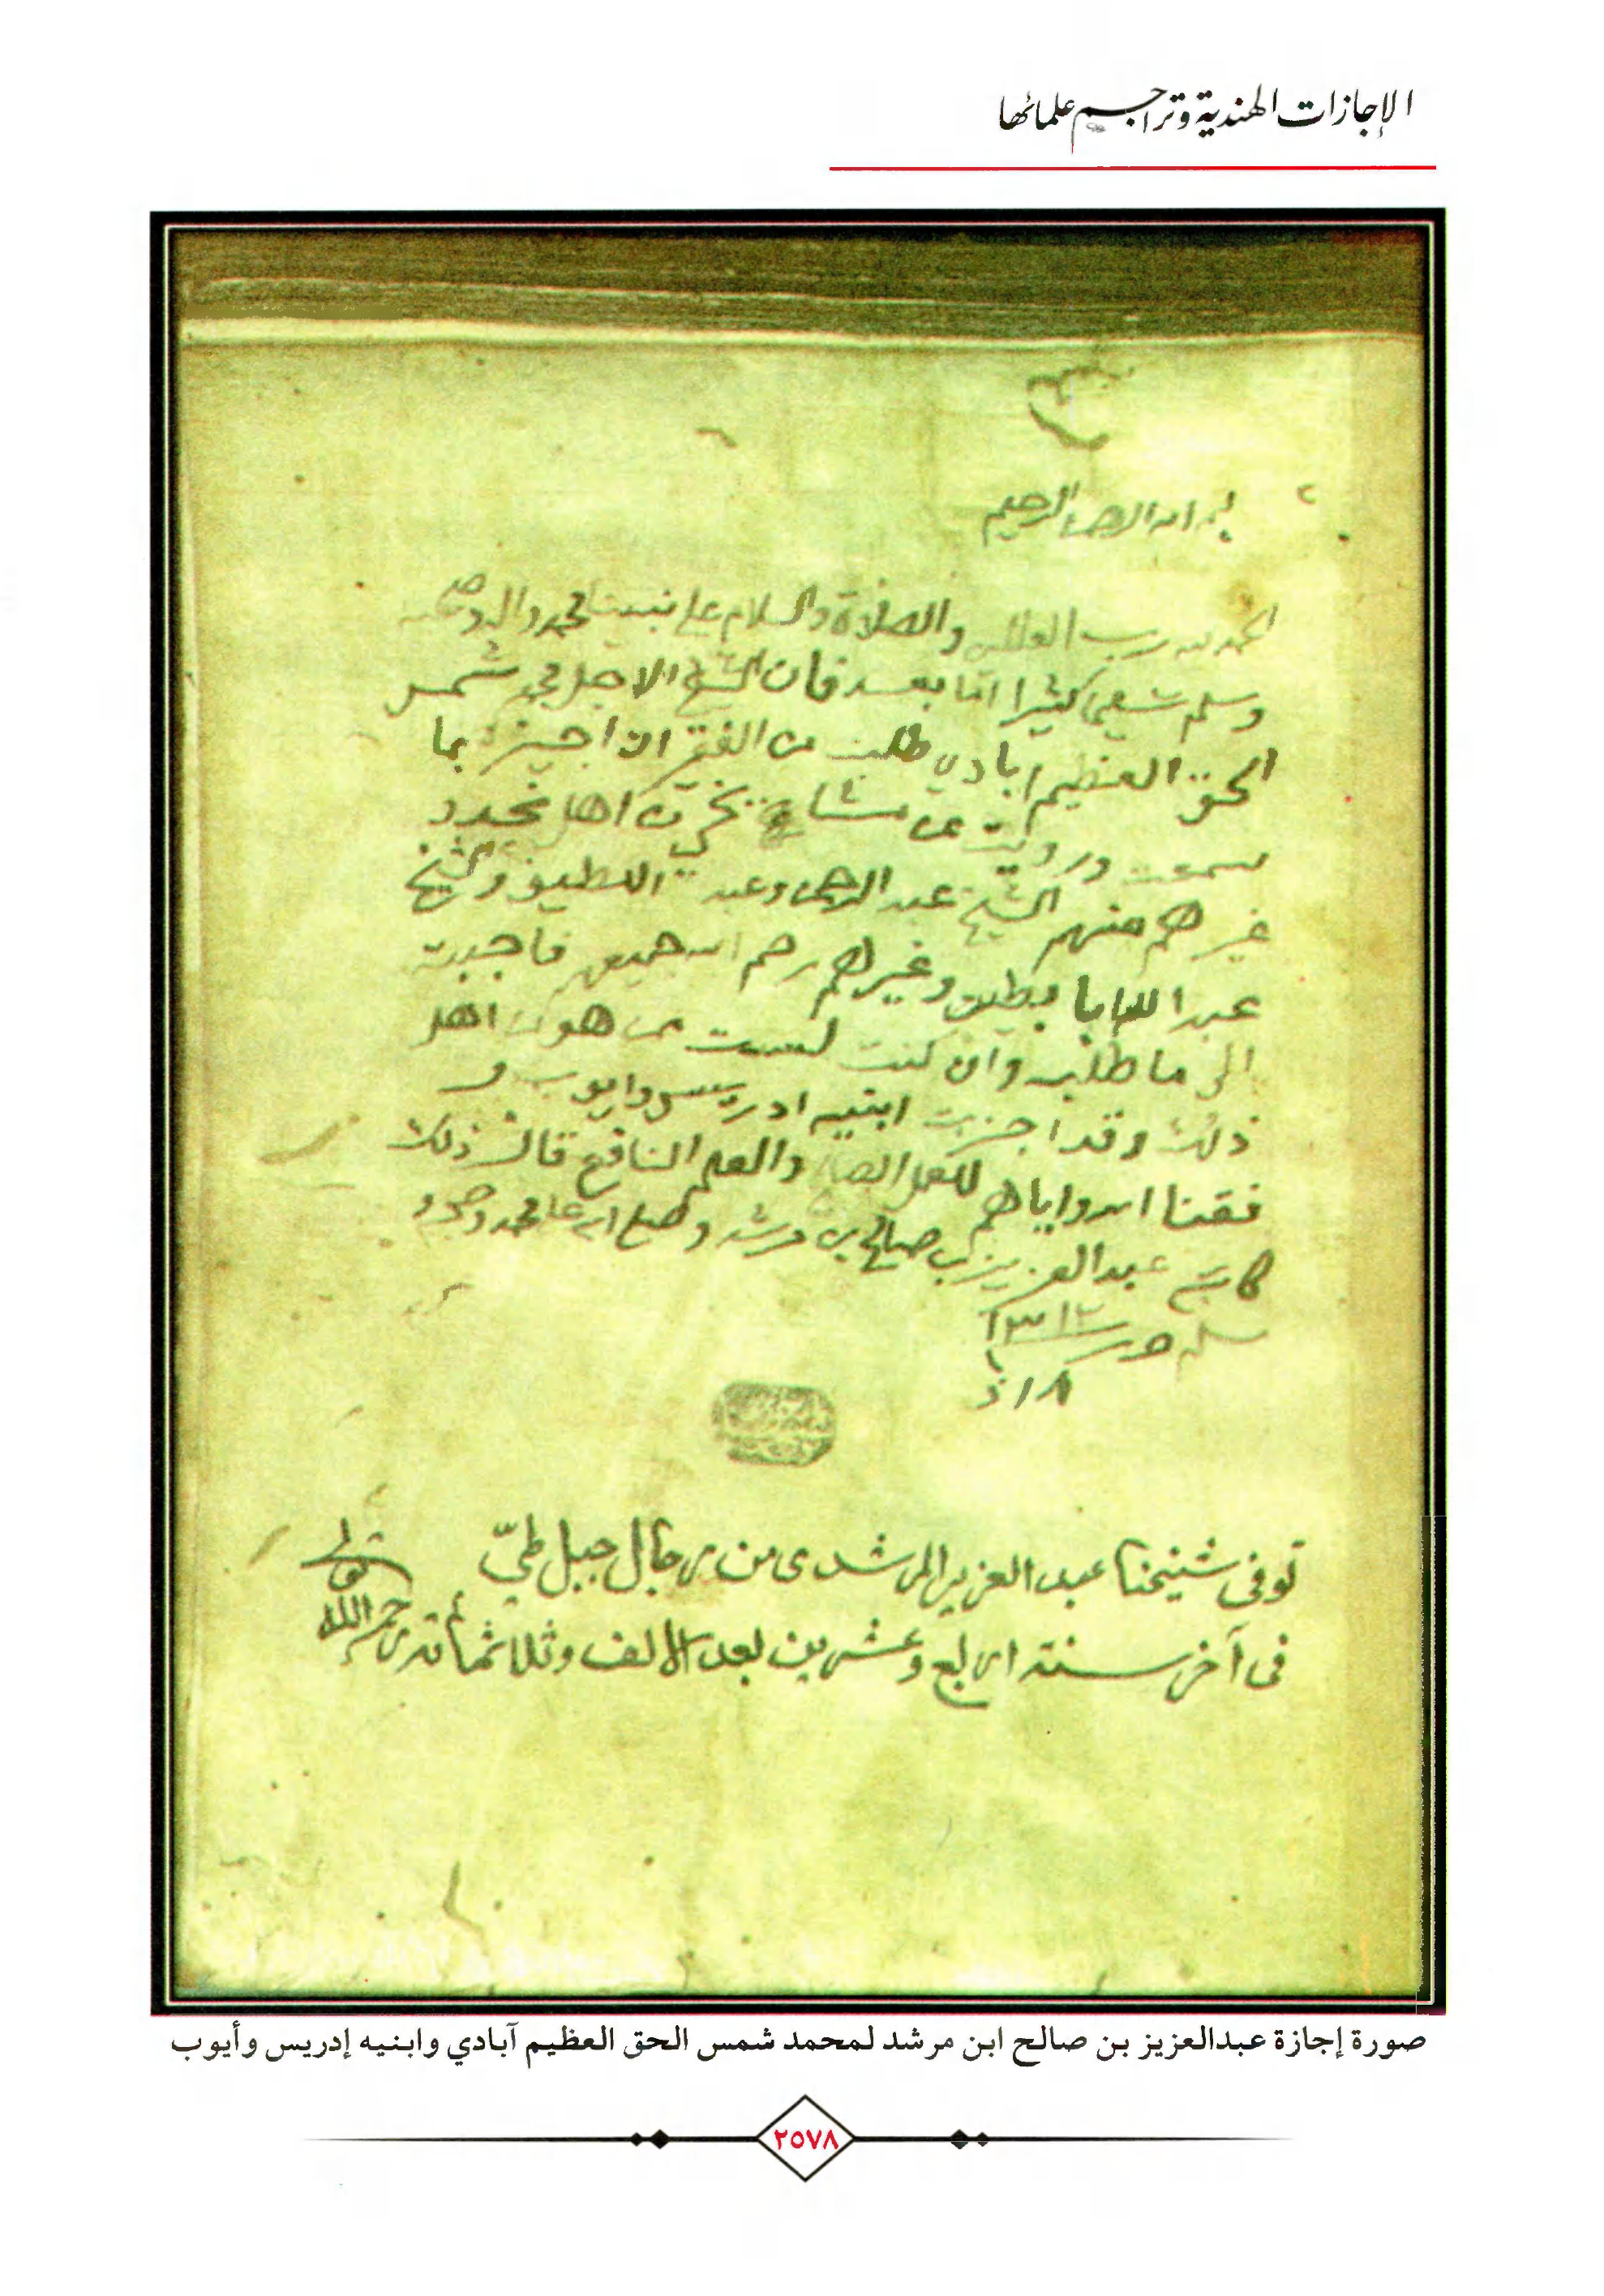 الإجازات الهندية وتراجم علمائها
بسم الله الرحمن الرحيم
الحمد لله رب العالمين والصلاة والسلام على نبينا محمد واله وصحبه
وسلم تسليما كثيرا اما بعد فان الشيخ الاجل محمد شمس
الحق العظيم ابادي طلب من الفقير ان اجيزه بما
سمعت ورويت عن مشايخي من اهل نجد و
غيرهم منهم الشيخ عبد الرحمن وعبد اللطيف والشيخ
عبد الله ابا بطين وغيرهم رحم الله جميعهم فاجبت
الى ما طلب وان كنت لست ممن هو من اهل
ذلك وقد اجزت ابنيه ادريس وايوب و
فقنا الله واياهم للعمل الصالح والعلم النافع قال ذلك
كاتبه عبد العزيز بن صالح بن مرشد وصلى الله على محمد وصحبه و
سلم حرر ١٣١٢
توفى شيخنا عبد العزيز المرشدى من رجال جبل طيّ
فى آخر سنة اربع وعشرين بعد الالف وثلاثمائة رحمه الله
صورة إجازة عبدالعزيز بن صالح ابن مرشد لمحمد شمس الحق العظيم آبادي وابنيه إدريس وأيوب
٢٥٧٨